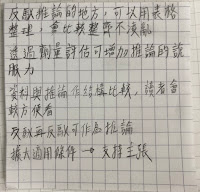 反駁推論的地方，可以用表格
整理，會比較整齊不淩亂
透過劑量評估可增加推論的說
服力
資料與推論在結論比較，讀者會
較方便看
反駁再反駁可作為推論
擴大適用條件→支持主張